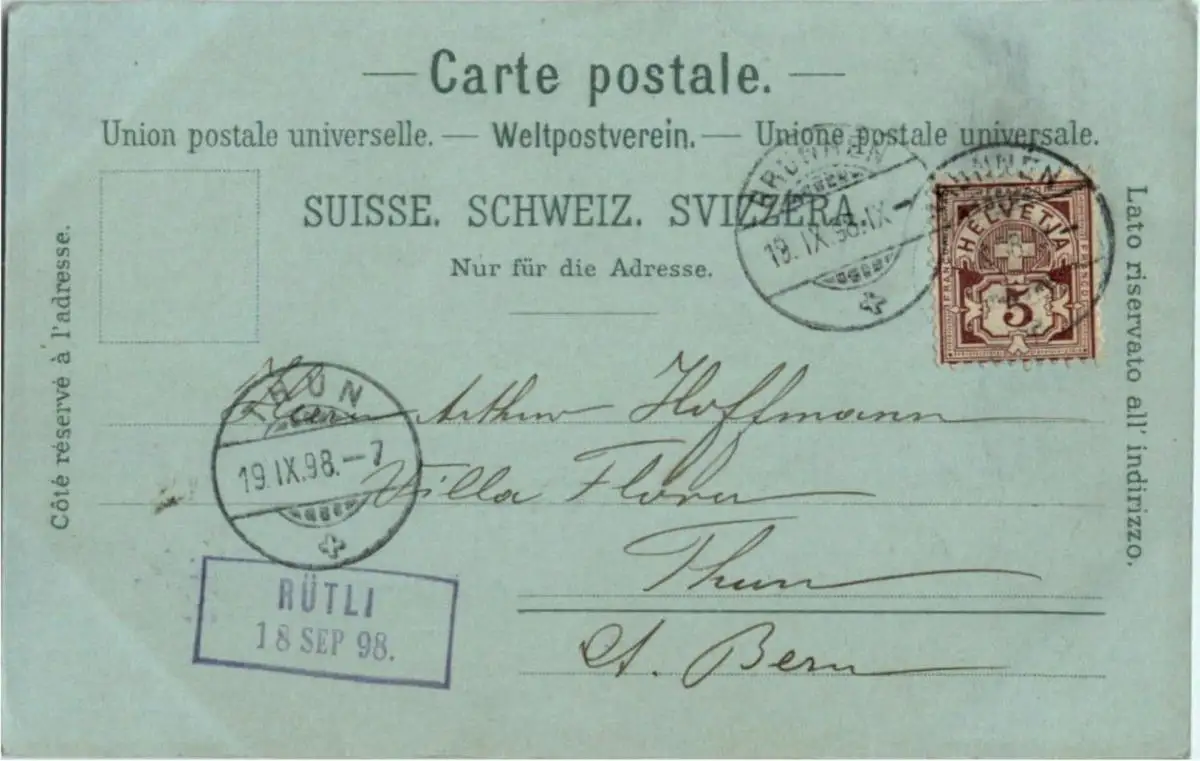 — Carte postale. —
Union postale universelle. — Weltpostverein. — Unione postale universale.
SUISSE. SCHWEIZ. SVIZZERA.
Nur für die Adresse.
Côté réservé à l'adresse.
Lato riservato all' indirizzo.
BRUNNEN
19.IX.98.IX-
BRUNNEN
HELVETIA
FRANCO
FRANCO
5
THUN
19.IX.98.-7
Herrn Arthur Hoffmann
Villa Flora
Thun
Ct. Bern
RÜTLI
18 SEP 98.